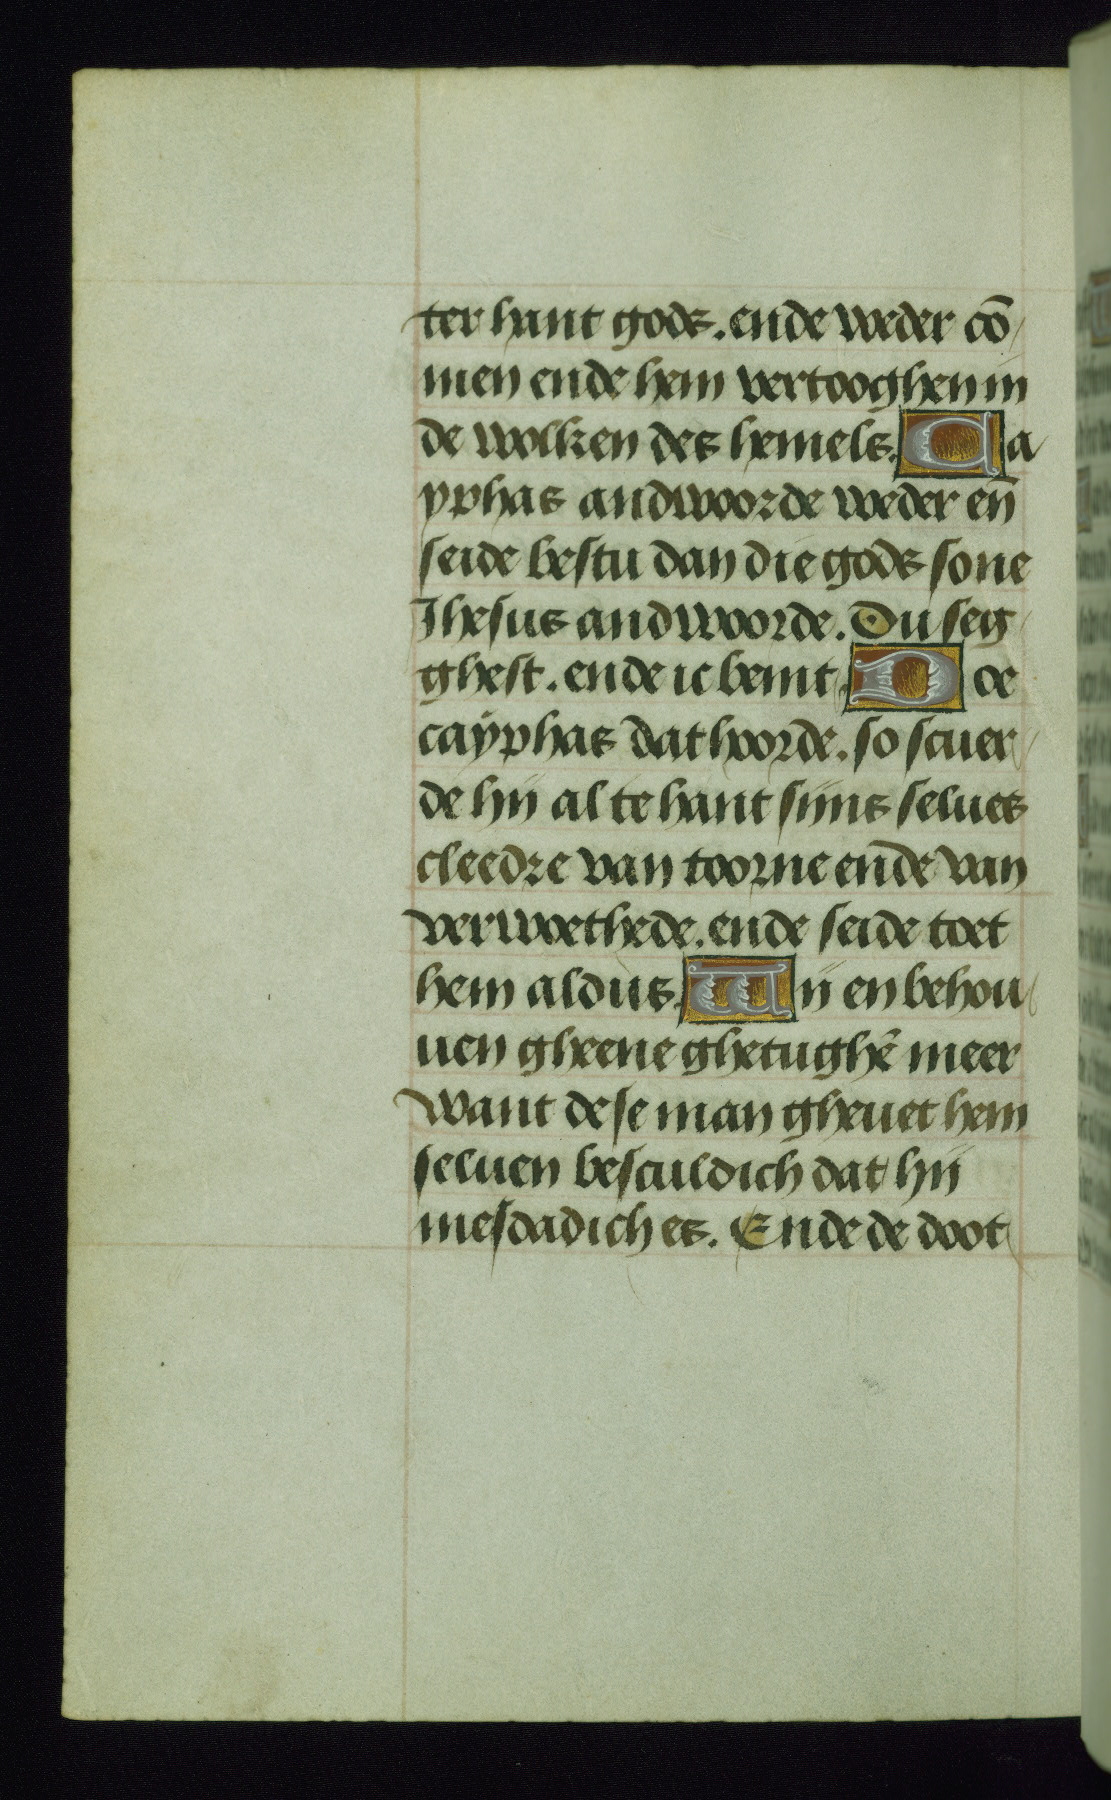 ter hant gods. ende weder cō
men ende hem vertooghen in
de wolken des hemels. Ca
yphas andwoorde weder eñ
seide bestu dan die gods sone
Jhesus andwoorde. Du seg
ghest. ende ic bemt. Doe
cayphas dat hoorde. so scuer
de hij al te hant sijns selues
cleedre van toorne ende van
verwoethede. ende seide toet
hem aldus. Wij en behou
uen gheene ghetughē meer
want dese man gheuet hem
seluen besculdich dat hij
mesdadich es. Ende de doot